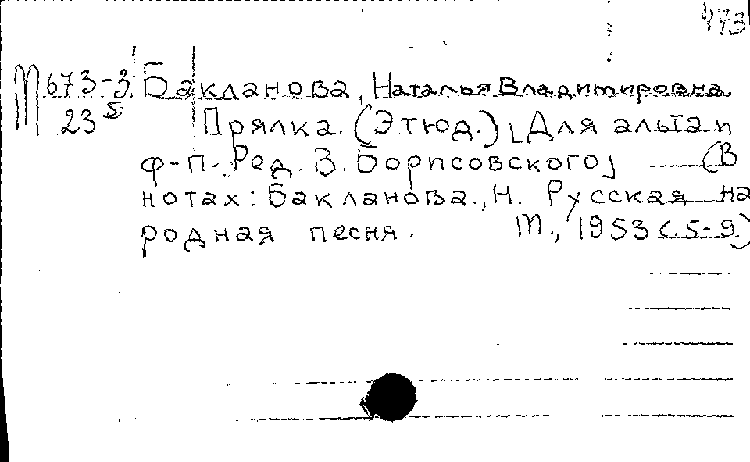 473
М673-3 Бакланова, Наталья Владимировна
23 Прялка. (Этюд.) [Для альта и
ф-п. Ред. В. Борисовского] (В
нотах: Бакланова, Н. Русская на
родная песня. М., 1953 с. 5-9)